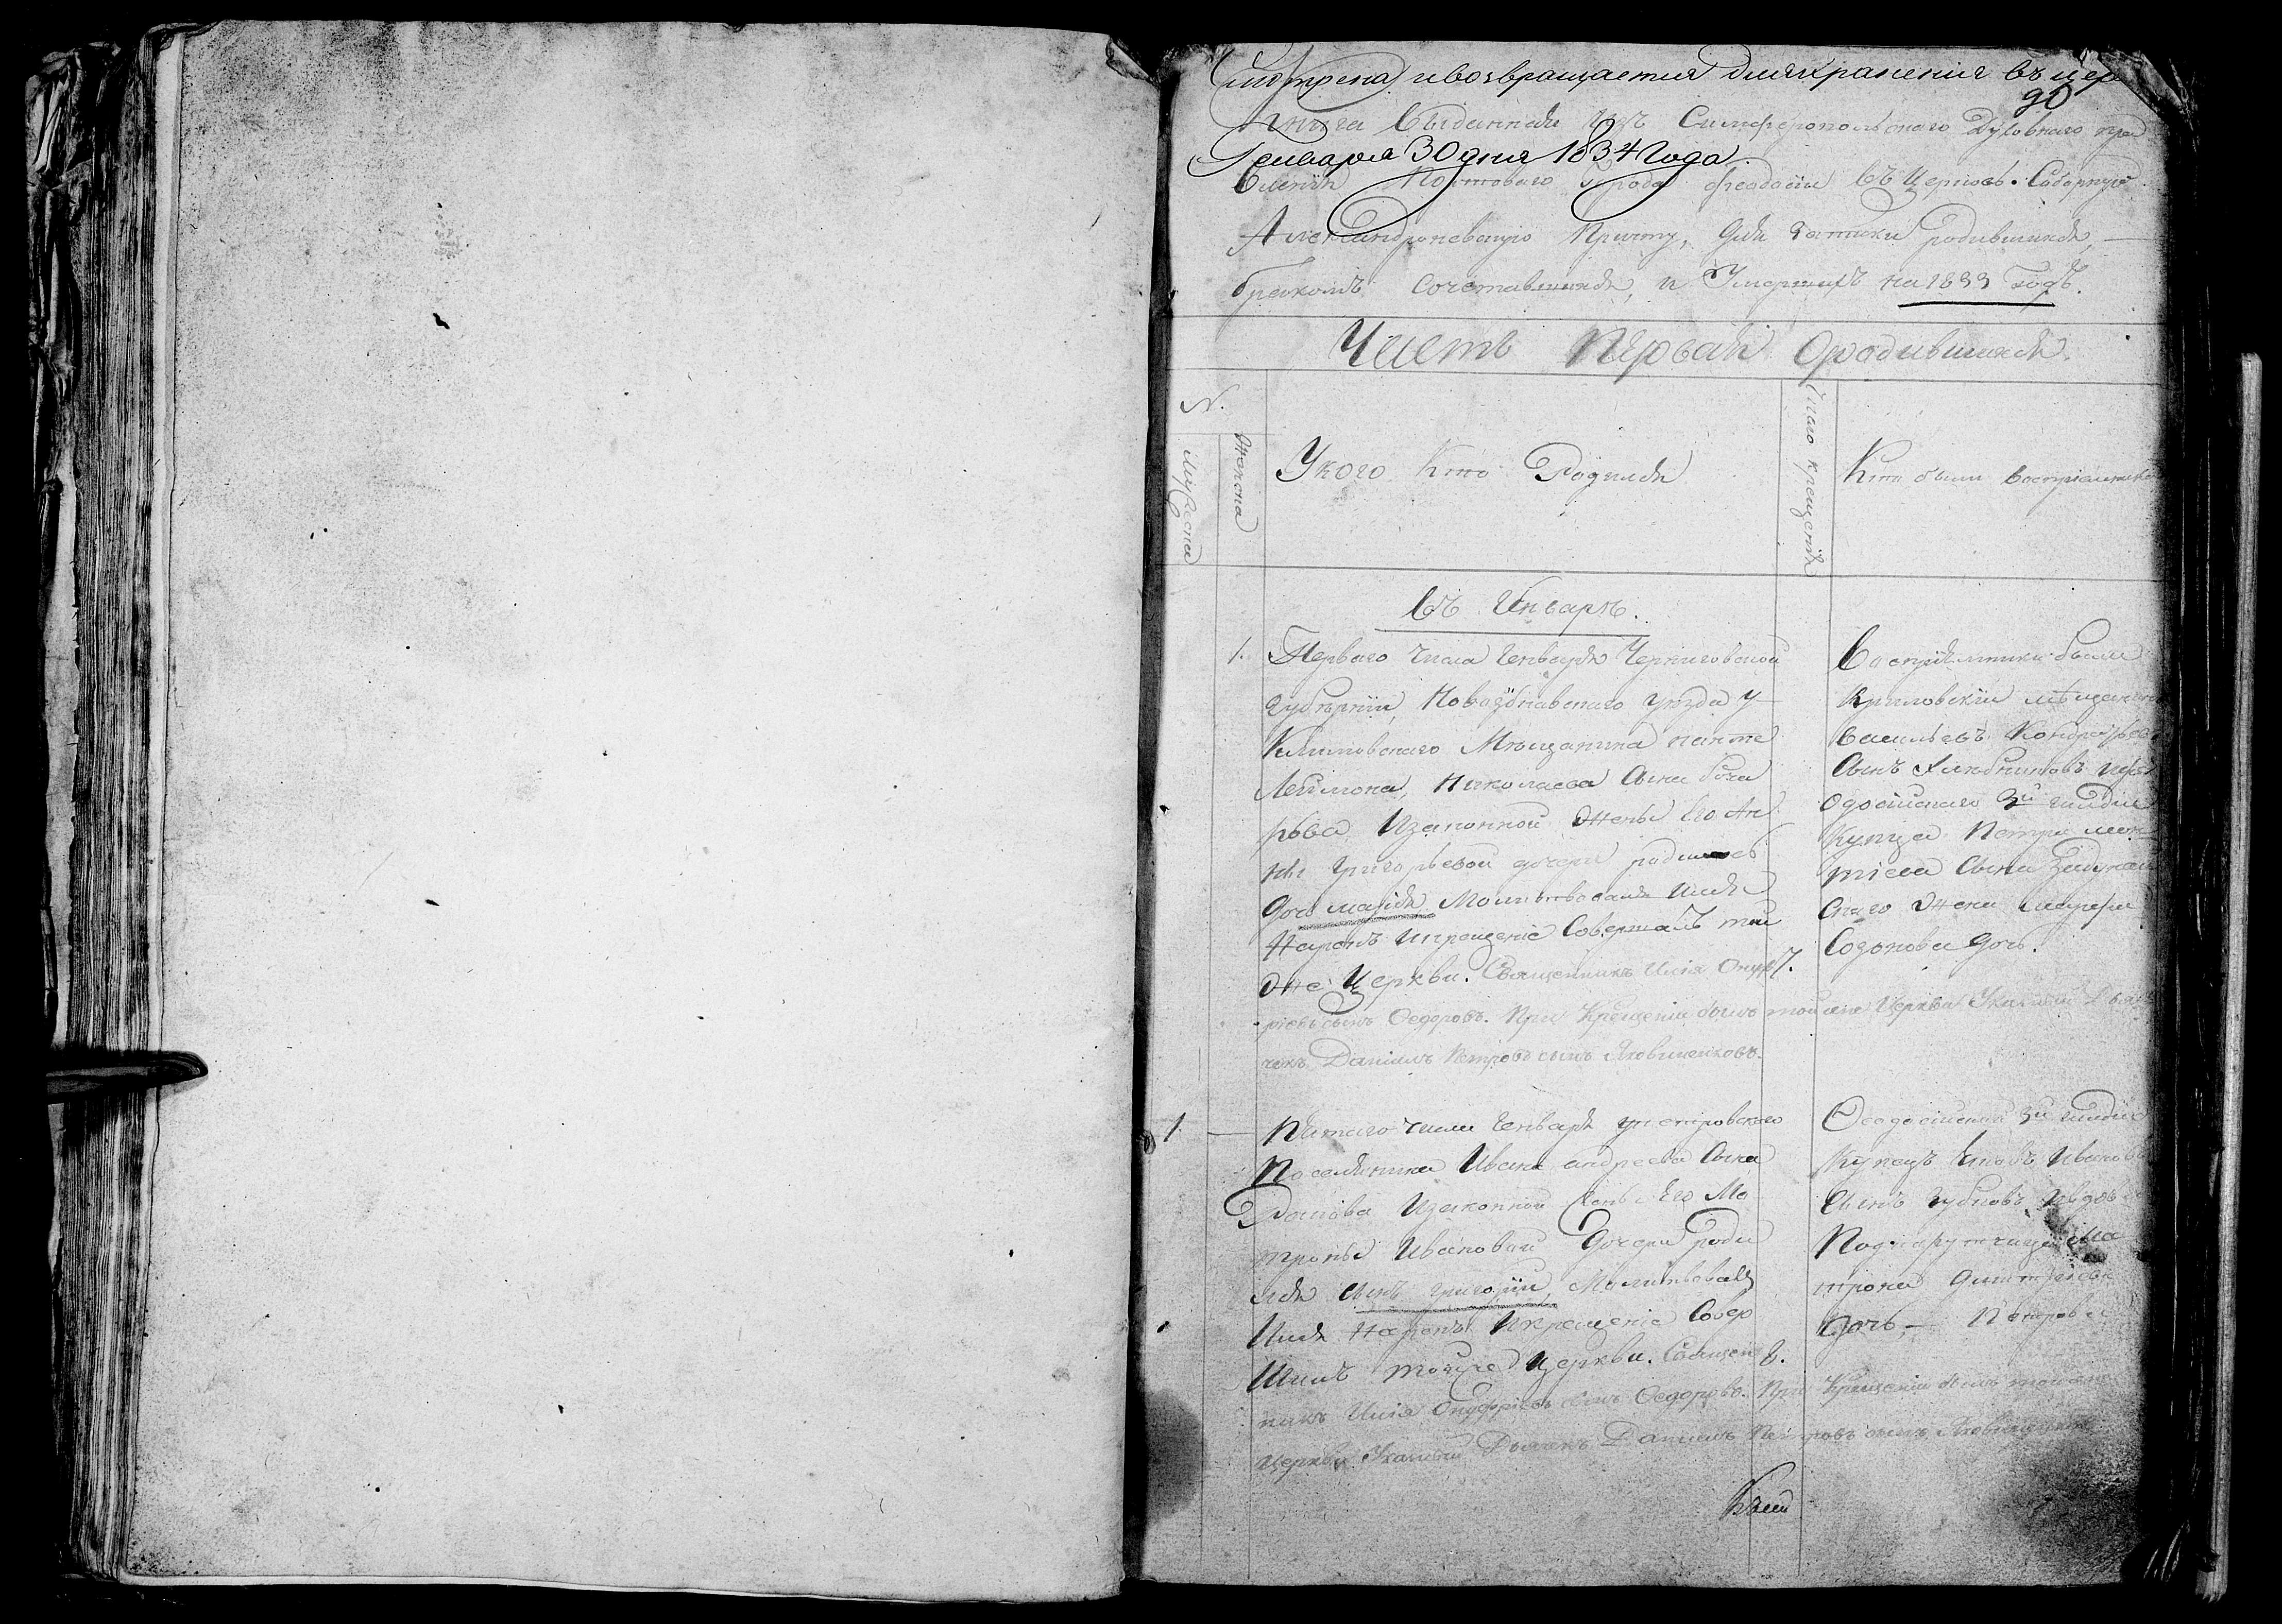 Смотрена и возвращается для хранения въ цер
90
Книга Выданная Изъ Симферопольскаго Духовнаго пра
Генваря 30 дня 1834 Года.
вления Портоваго Города Феодосіи въ Церковь Соборную
Александроневскую Причту, для записки родившихся,
бракомъ Сочетавшихся, и Умершихъ на 1833 Годъ.
Часть Первая Ородившихся.
N.
Мужеска
Женска
Укого Кто Родился
Число крещенія
Кто были восприемники
Въ Генваре.
1. Перваго числа Генваря Черниговской
Губернии, Новозыбкавскаго уезда у
Климовскаго Мещанина панте
Леймона, Николаева Сына
рева Изаконной Жены Его Ан
ны Григорьевой дочери родилась
Дочь марія Молитвовалъ Имя
Нарекъ Икрещеніе Совершалъ той
же Церкви. Священникъ Илія Онуф 7.
ріевъ сынъ Федоровъ. При Крещеніи былъ той же Церкви Указный Дья
чекъ Даніилъ Петровъ сынъ
Восприемники были
мещанинъ
Васильевъ Кондратьевъ
Сынъ Хлебниковъ ифе
Одосийскаго 3й гилдии
Купца Петра
Сына
Скаго Жена
Созонова Дочь.
1. Пятаго числа Генваря у
Поселянина Ивана андреева Сына
Изаконной Жены Его Ма
троны Ивановой Дочери роди
лся Сынъ григорий, Молитвовалъ
Имя Нарекъ Икрещеніе Совер
Шилъ тойже Церкви. Священ 8.
никъ Илія Онуфріевъ сынъ Федоровъ. При Крещеніи былъ той же
Церкви Указный Дьячекъ Даніилъ Петровъ сынъ
Феодосийский 3й гилдии
Купецъ Яковъ Ивановъ
Сынъ Губновъ ивдова
Подпорутчица Ма
трона Дмитриева
Дочь, — Петрова